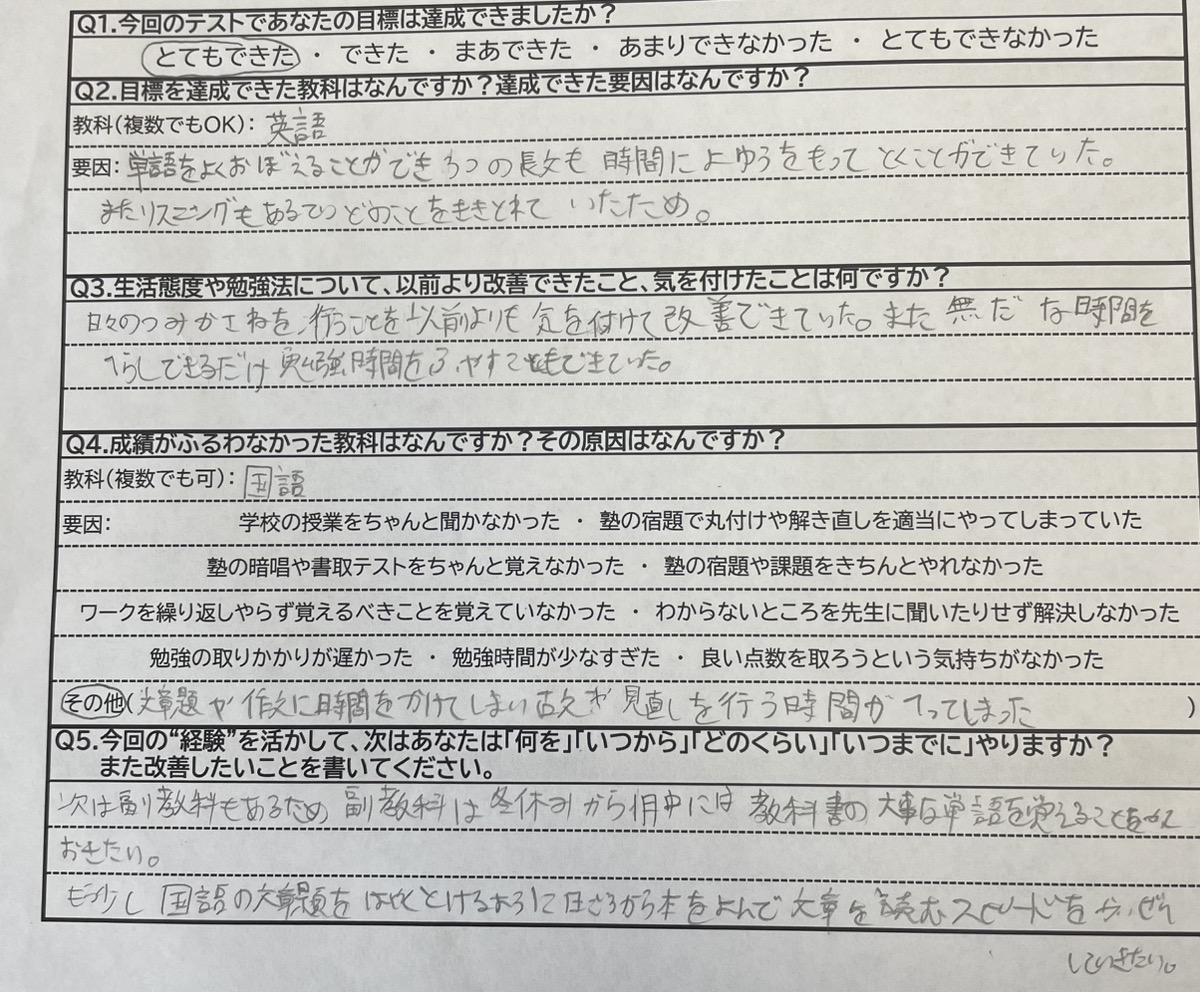 Q1.今回のテストであなたの目標は達成できましたか？
とてもできた ・ できた ・ まあできた ・ あまりできなかった ・ とてもできなかった
Q2.目標を達成できた教科はなんですか？達成できた要因はなんですか？
教科(複数でもOK)： 英語
要因： 単語をよくおぼえることができ3つの長文も 時間によゆうをもって とくことができていた。
またリスニングもあるていどのことをききとれて いたため。
Q3.生活態度や勉強法について、以前より改善できたこと、気を付けたことは何ですか？
日々のつみかさねを行うことを以前よりも 気を付けて改善できていた。また 無だな時間を
へらしできるだけ 勉強時間をふやすこともできていた。
Q4.成績がふるわなかった教科はなんですか？その原因はなんですか？
教科(複数でも可)： 国語
要因： 学校の授業をちゃんと聞かなかった ・ 塾の宿題で丸付けや解き直しを適当にやってしまっていた
塾の暗唱や書取テストをちゃんと覚えなかった ・ 塾の宿題や課題をきちんとやれなかった
ワークを繰り返しやらず覚えるべきことを覚えていなかった ・ わからないところを先生に聞いたりせず解決しなかった
勉強の取りかかりが遅かった ・ 勉強時間が少なすぎた ・ 良い点数を取ろうという気持ちがなかった
その他(文章題や作文に時間をかけてしまい古文や 見直しを行う時間が へってしまった )
Q5.今回の“経験”を活かして、次はあなたは「何を」「いつから」「どのくらい」「いつまでに」やりますか？
また改善したいことを書いてください。
次は副教科もあるため 副教科は冬休みから1月中には 教科書の大事な単語を覚えることを
おきたい。
もう少し 国語の文章題を はやくとけるように日ごろから本をよんで 文章を読むスピードを かいぜん
していきたい。